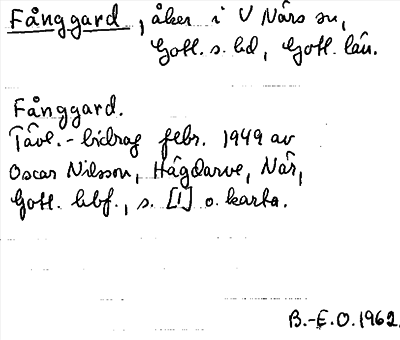 Fånggard, åker i V Närs sn,
Gotl. s. hd, Gotl. län.
Fånggard.
Tävl.-bidrag febr. 1949 av
Oscar Nilsson, Hägdarve, När,
Gotl. hbf., s. [1] o. karta.
B.-E.O. 1962.